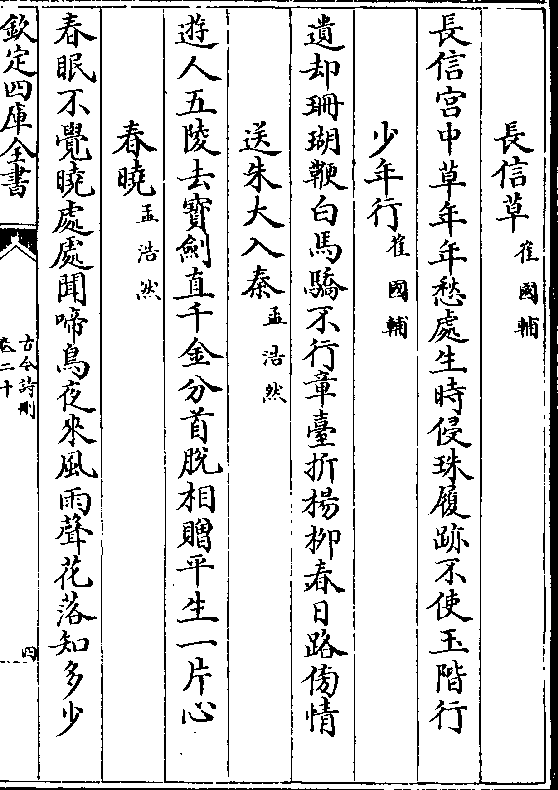 長信草 崔國輔
長信宮中草年年愁處生時侵珠履跡不使玉階行
少年行 崔國輔
遺却珊瑚鞭白馬驕不行章臺折楊柳春日路傍情
送朱大入秦 孟浩然
遊人五陵去寶劍直千金分首脫相贈平生一片心
春曉 孟浩然
春眠不覺曉處處聞啼鳥夜來風雨聲花落知多少
欽定四庫全書
古今詩刪
卷二十
四